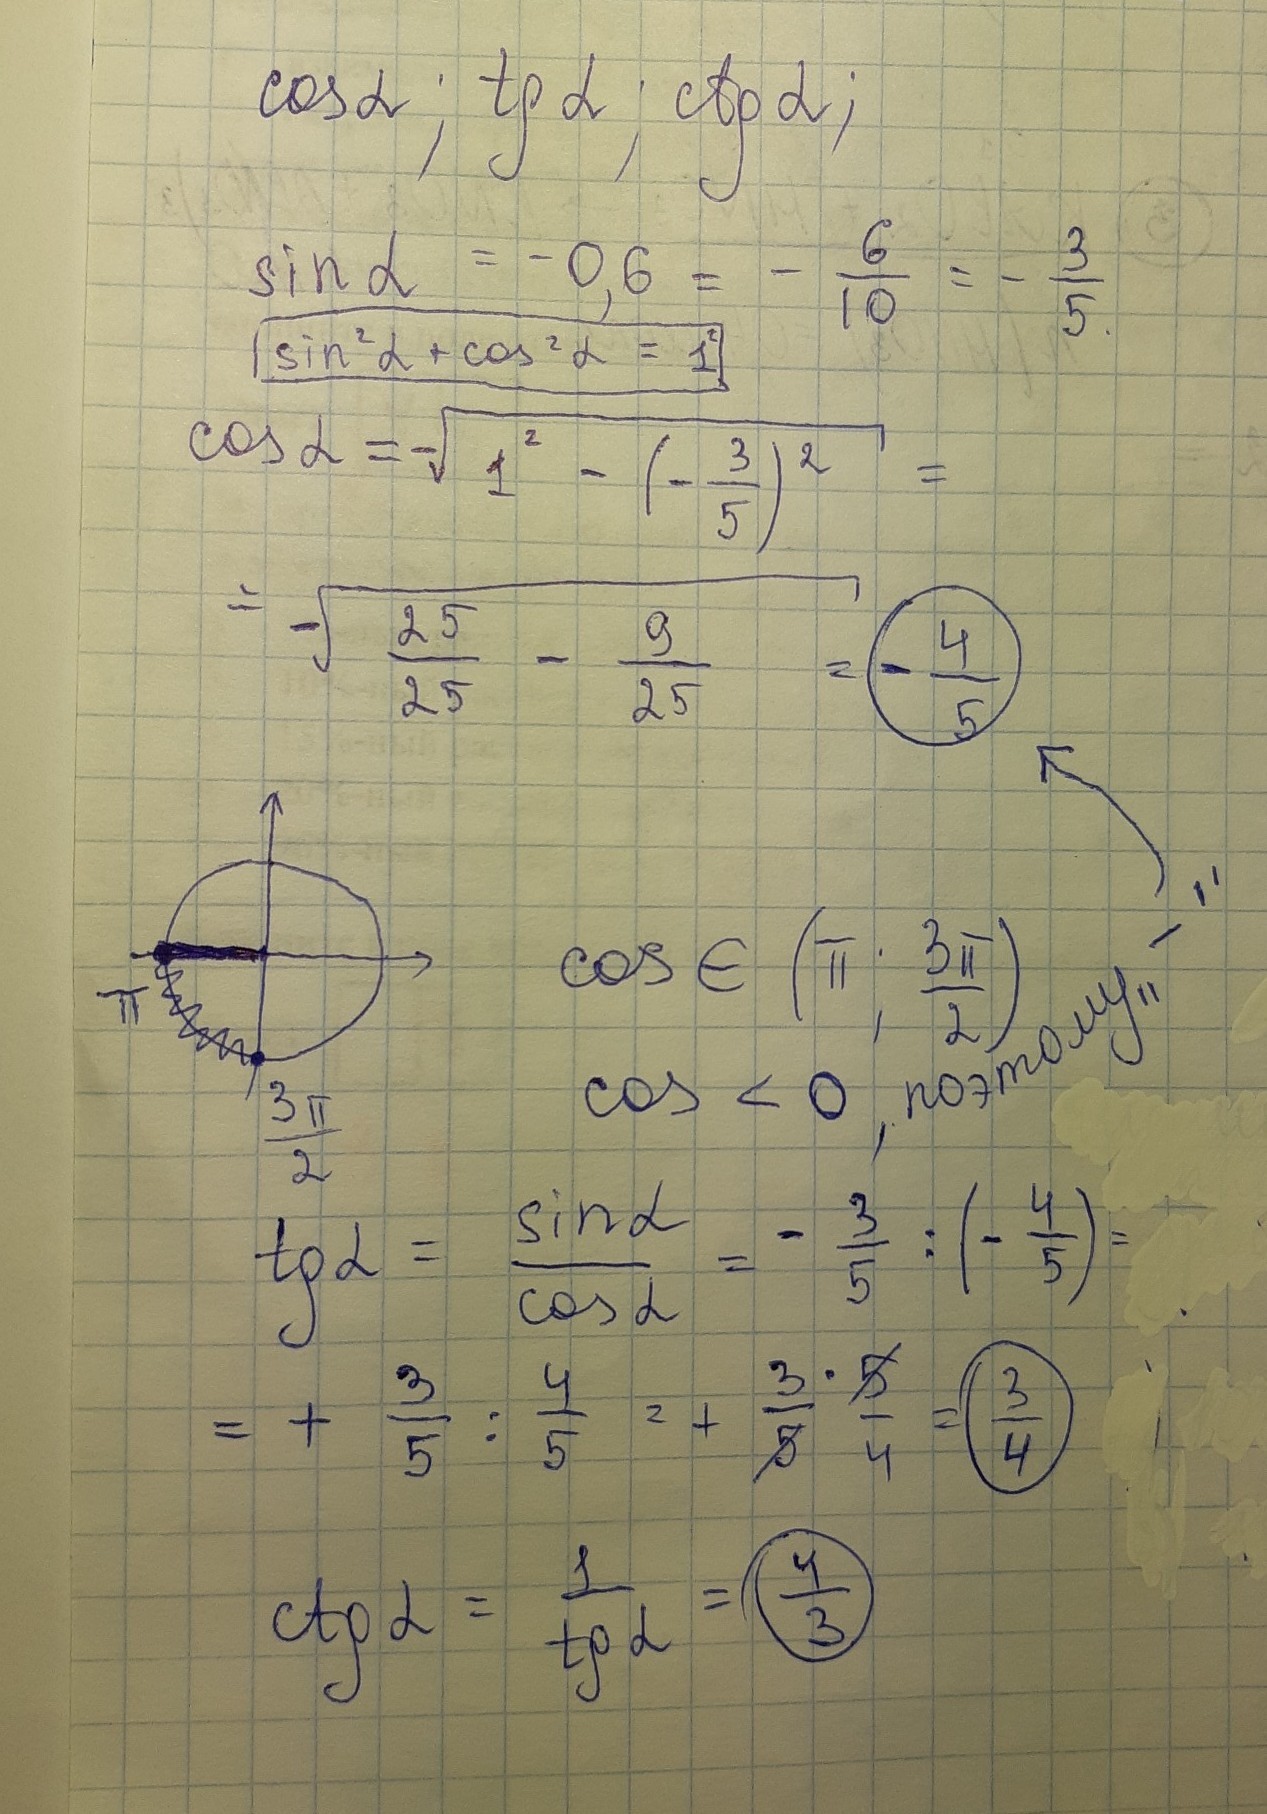 cosα; tgα; ctgα;
sinα = -0,6 = - 6/10 = - 3/5.
sin²α + cos²α = 1²
cosα = -√(1² - (-3/5)²) =
= -√(25/25 - 9/25) = -4/5
π
3π/2
cos ∈ (π; 3π/2)
cos < 0, поэтому "-"
tgα = sinα/cosα = - 3/5 : (- 4/5) =
= + 3/5 : 4/5 = + 3/5 · 5/4 = 3/4
ctgα = 1/tgα = 4/3